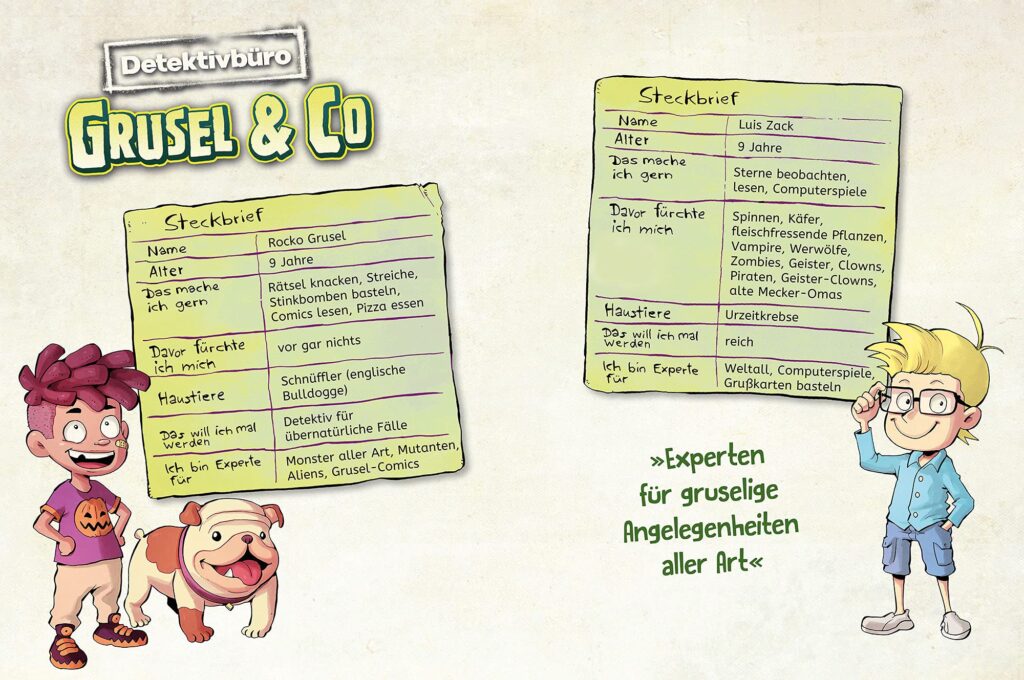 Detektivbüro
GRUSEL & CO
Steckbrief
Name Rocko Grusel
Alter 9 Jahre
Das mache Rätsel knacken, Streiche,
ich gern Stinkbomben basteln,
Comics lesen, Pizza essen
Davor fürchte vor gar nichts
ich mich
Haustiere Schnüffler (englische
Bulldogge)
Das will ich mal Detektiv für
werden übernatürliche Fälle
Ich bin Experte Monster aller Art, Mutanten,
für Aliens, Grusel-Comics
Steckbrief
Name Luis Zack
Alter 9 Jahre
Das mache Sterne beobachten,
ich gern lesen, Computerspiele
Davor fürchte Spinnen, Käfer,
ich mich fleischfressende Pflanzen,
Vampire, Werwölfe,
Zombies, Geister, Clowns,
Piraten, Geister-Clowns,
alte Mecker-Omas
Haustiere Urzeitkrebse
Das will ich mal reich
werden
Ich bin Experte Weltall, Computerspiele,
für Grußkarten basteln
»Experten
für gruselige
Angelegenheiten
aller Art«